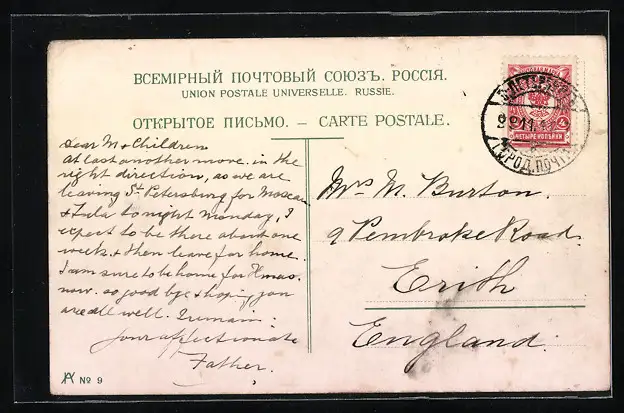 ВСЕМІРНЫЙ ПОЧТОВЫЙ СОЮЗЪ. РОССІЯ.
UNION POSTALE UNIVERSELLE. RUSSIE.
ОТКРЫТОЕ ПИСЬМО. – CARTE POSTALE.
Dear M & Children
at last another move. in the
right direction, as we are
leaving St. Petersburg for Moscow
& Tula tonight Monday, I
expect to be there about one
week & then leave for home.
I am sure to be home for Xmas.
now. so good bye & hoping you
are all well. I remain:
your affectionate
Father.
Mrs M. Burton.
9 Pembroke Road.
Erith
England.
С.ПЕТЕРБУРГЪ
ГОРОД. ПОЧТА
ЧЕТЫРЕ КОПѢЙКИ
4
№ 9